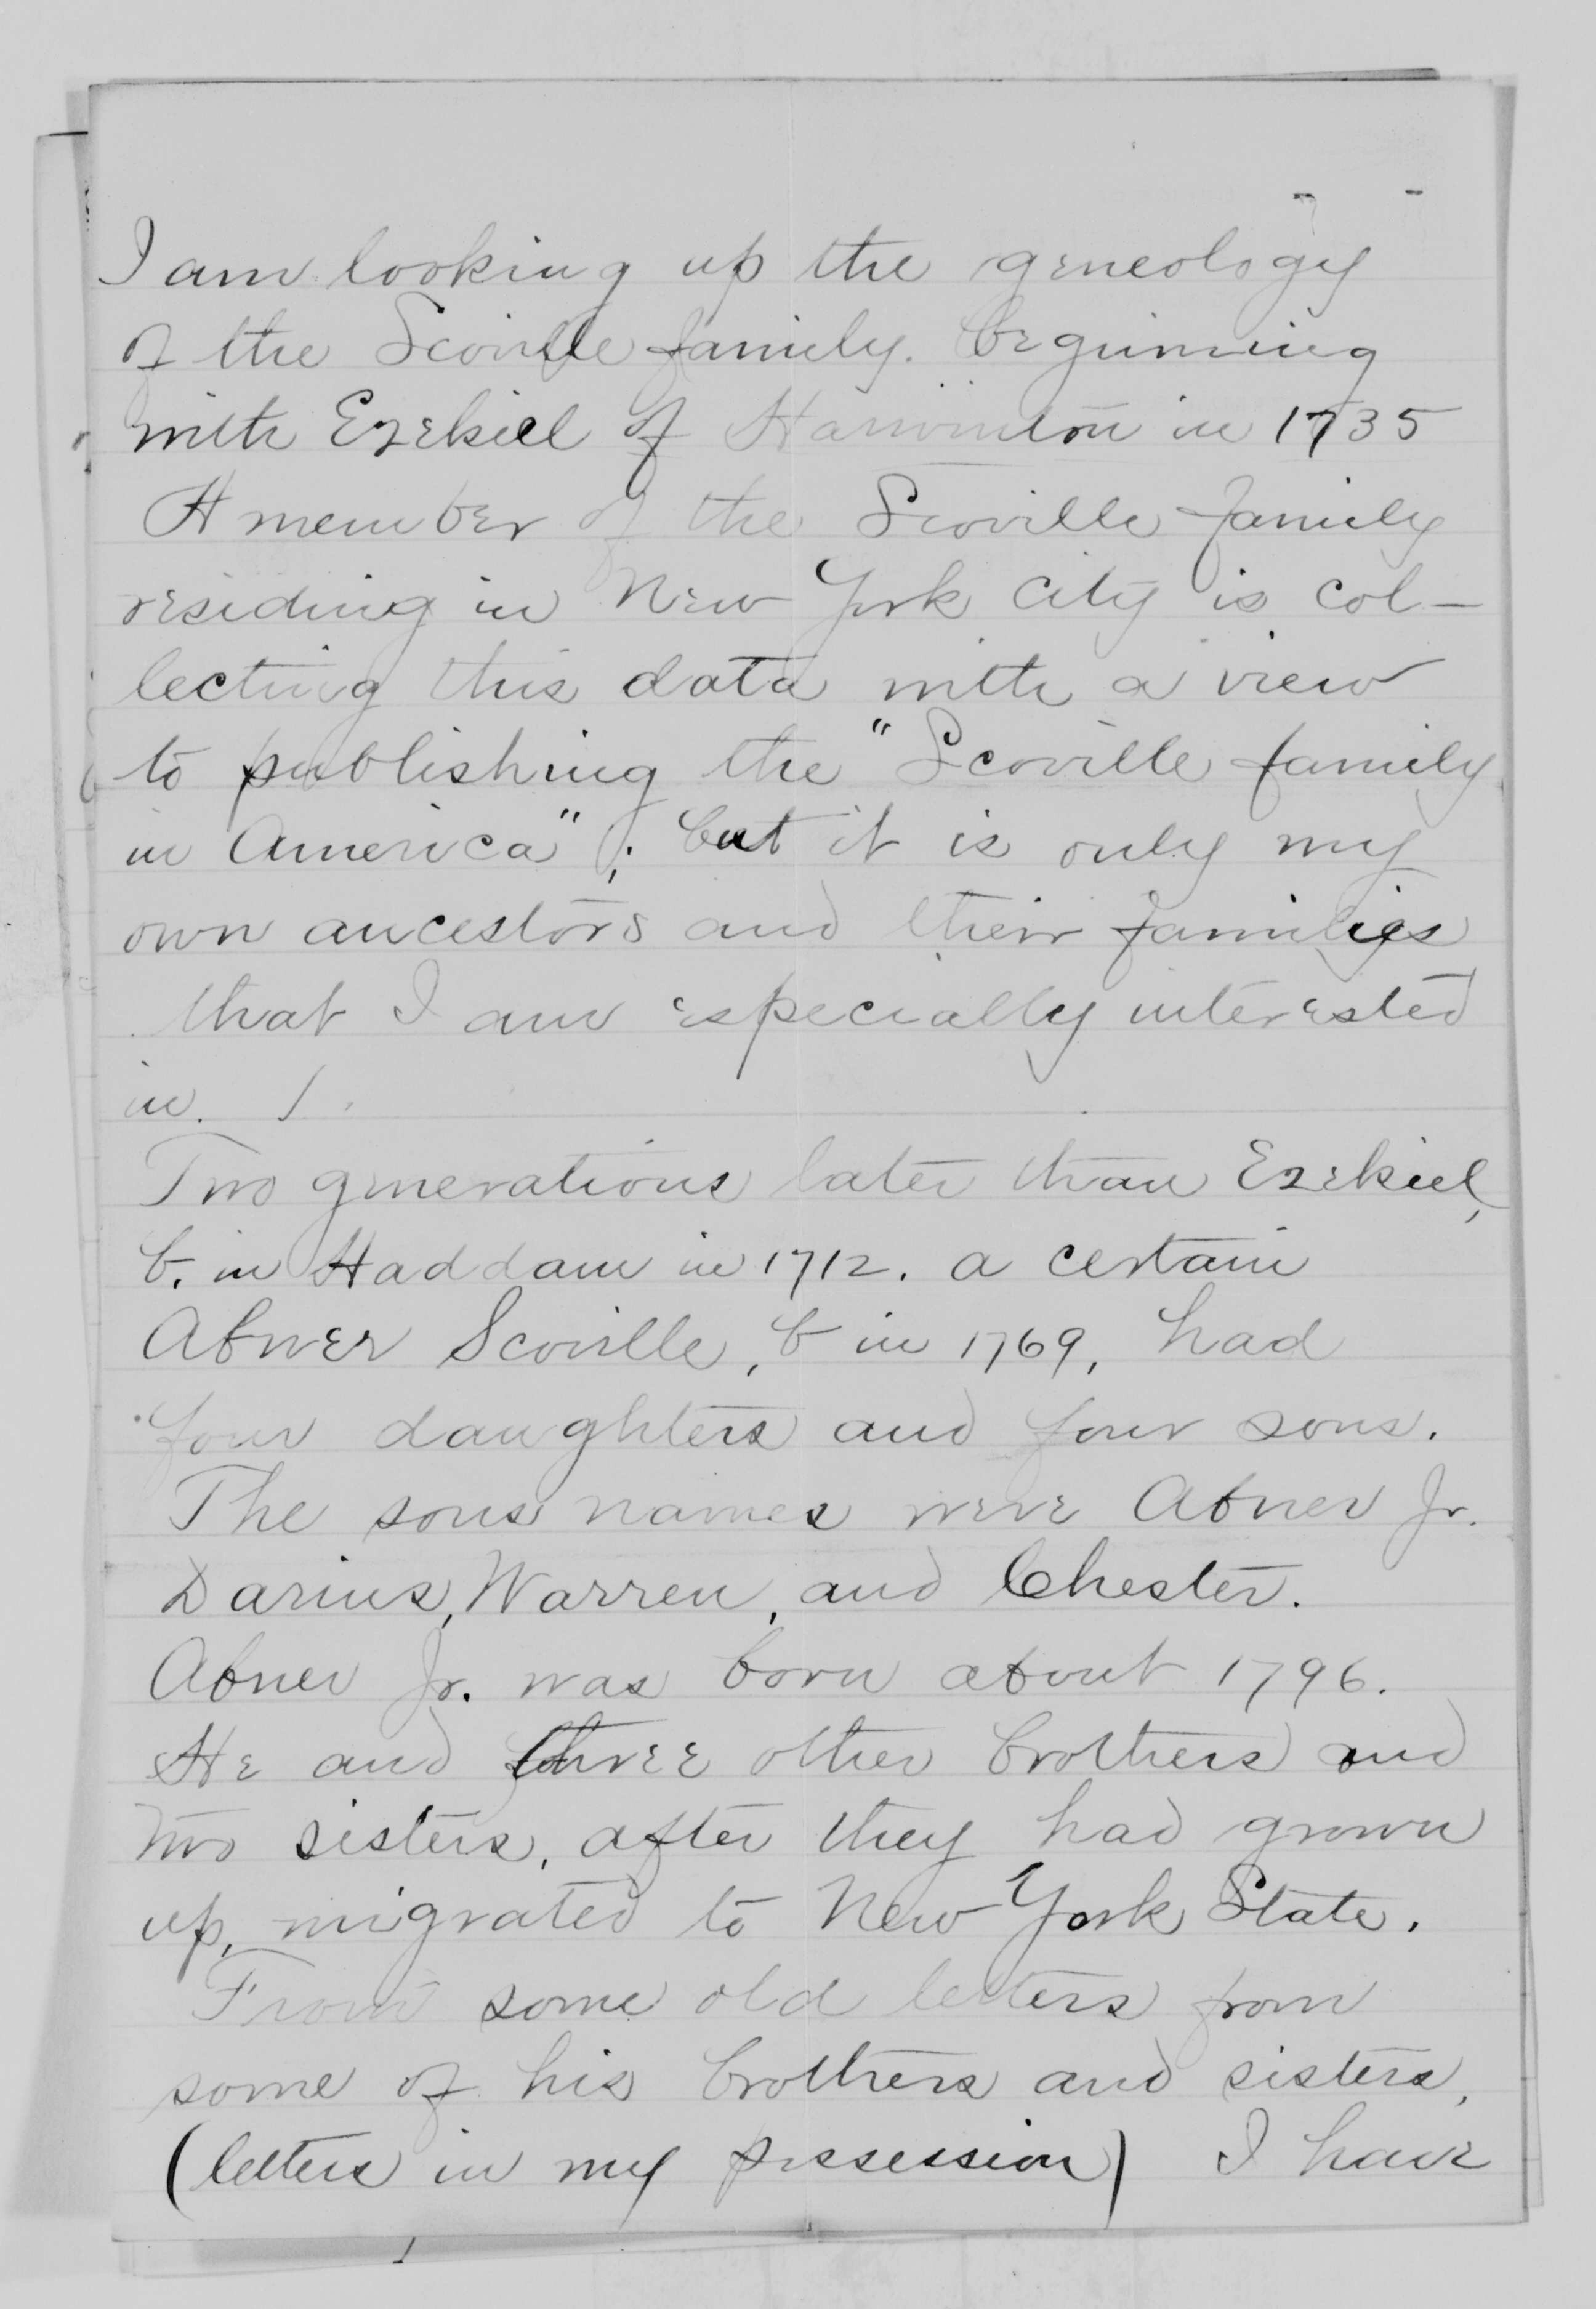 I am looking up the geneology
of the Scoville family. beginning
with Ezekiel of Harwinton in 1735
A member of the Scoville family
residing in New York City is col-
lecting this data with a view
to publishing the "Scoville family
in America"; but it is only my
own ancestors and their families
that I am especially interested
in.
Two generations later than Ezekiel,
b. in Haddam in 1712. a certain
Abner Scoville, b in 1769, had
four daughters and four sons.
The sons names were Abner Jr.
Darius, Warren, and Chester.
Abner Jr. was born about 1796.
He and three other brothers and
two sisters, after they had grown
up, migrated to New York State.
From some old letters from
some of his brothers and sisters,
(letters in my possession) I have